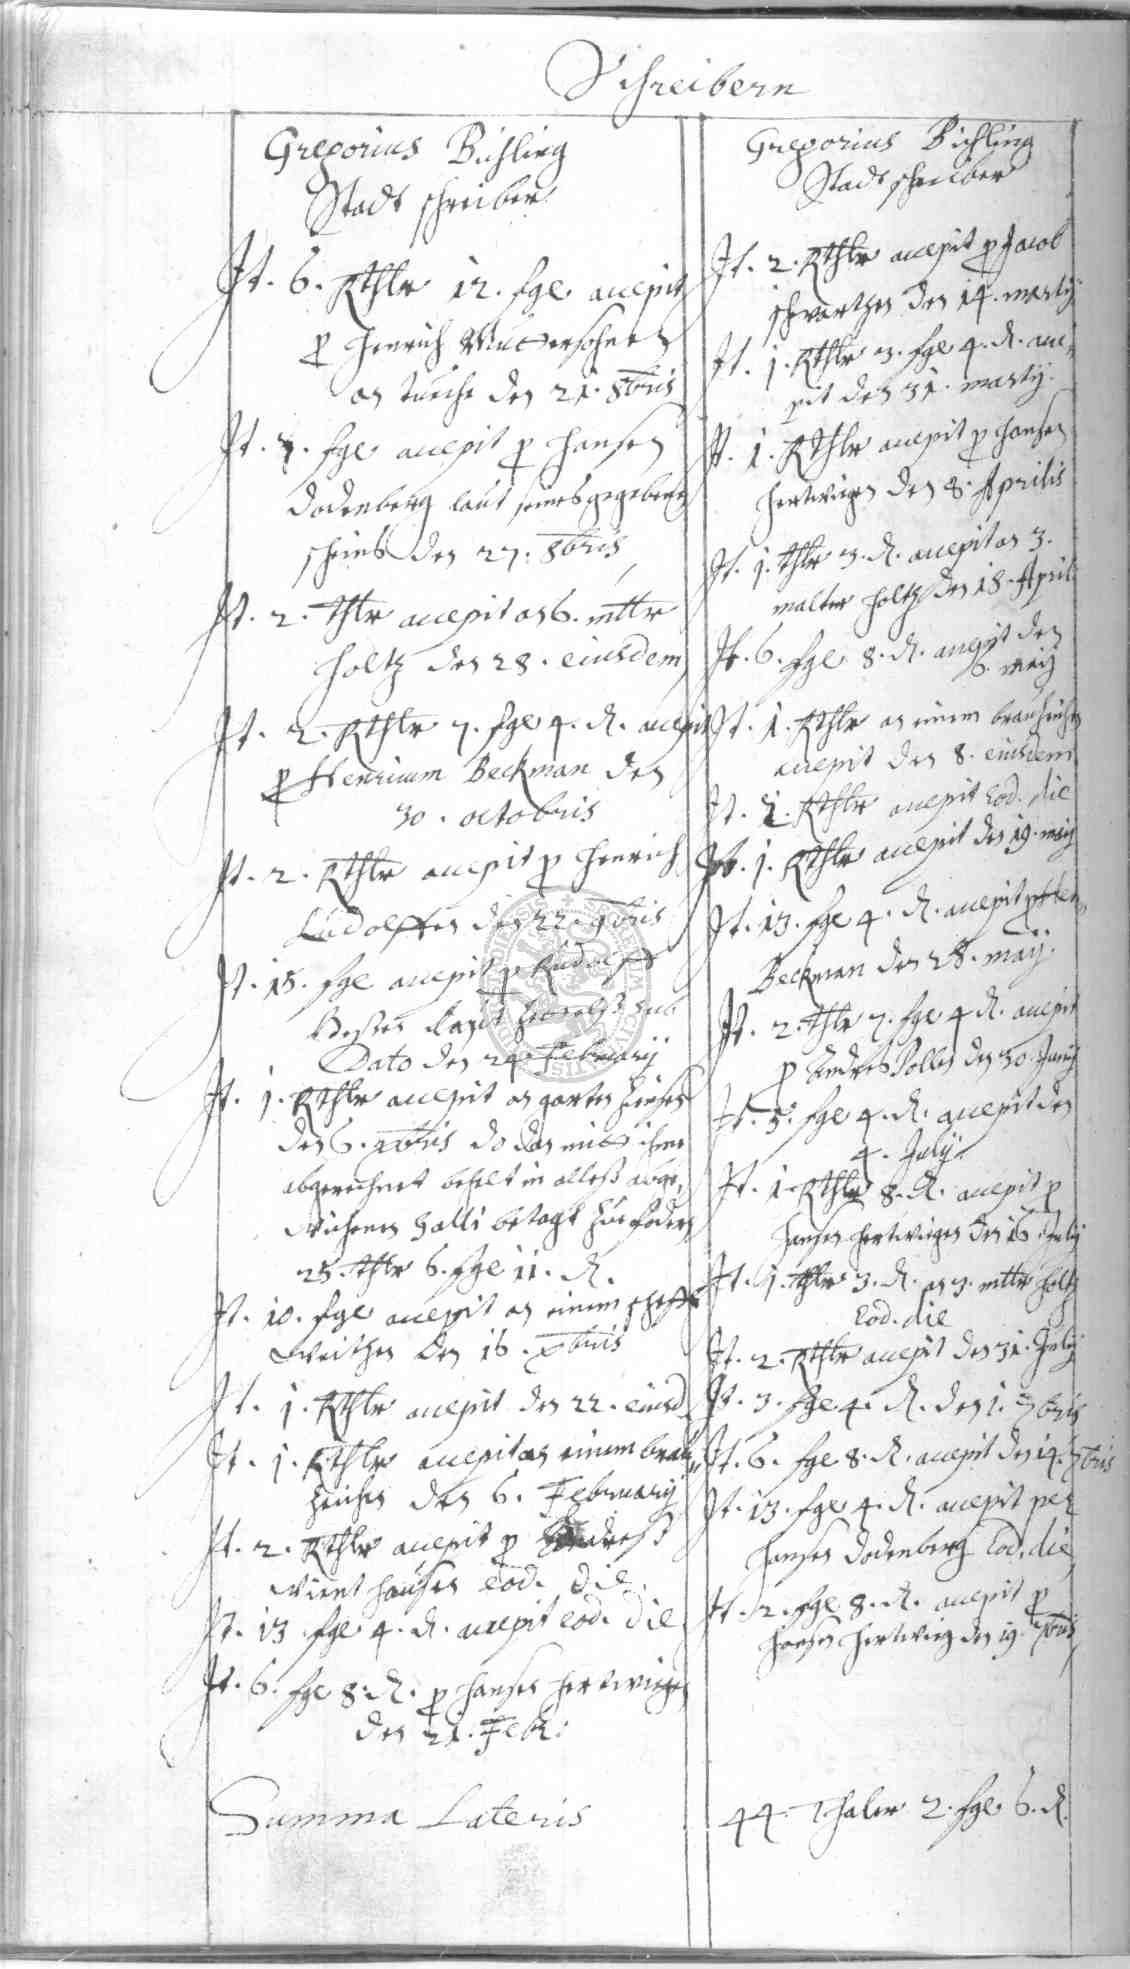 Schreibern
Gregorius Bichling
Stadt schreiber
It. 6. Rthlr 12. sgl accepit
p Henrich Muttersohnen
an tuche den 21. 8bris
It. 7. sgl accepit p Hansen
Dodenberg laut seines gegebenen
scheins den 27. 8bris
It. 2. thlr accepit an 6. mltr
holtz den 28. eiusdem
It. 2. Rthlr 7. sgl 4. d. accepit
p Henricum Beckman den
30. octobris
It. 2. Rthlr accepit p Henrich
Ludolffen den 22. 9bris
It. 15. sgl accepit p Rudolff
Dato den 24 Februarij
It. 1. Rthlr accepit an garten zinsen
den 6. xbris do den mit ihme
abgerechnet behelt in alles abge,
25. thlr 6. sgl 11. d.
It. 10. sgl accepit an einem scheffel
weitzen den 16. xbris
It. 1. Rthlr accepit den 22. eiusd
It. 1. Rthlr accepit an einem brau
zeichen den 6. Februarij
It. 2. Rthlr accepit p Andreß
Wienthausen eod. die.
It. 13. sgl 4. d. accepit eod. die
It. 6. sgl 8. d. p Hansen Hertwigen
den 21. Feb:
Summa Lateris
Gregorius Bichling
Stadt schreiber
It. 2. Rthlr accepit p Jacob
schwartzen den 14. martij
It. 1. Rthlr 3. sgl 4. d. acce
pit den 31. martij.
It. 1. Rthlr accepit p Hansen
Hertwigen den 8. Aprilis
It. 1. thlr 3. d. accepit an 3.
malter holtz den 18. April
It. 6. sgl 8. d. accepit den
6. maij
It. 1. Rthlr an einem brauzeichen
accepit den 8. eiusdem
It. 1. Rthlr accepit Eod. die
It. 1. Rthlr accepit den 19. maij
It. 13. sgl 4. d. accepit p Hen
Beckman den 28. maij.
It. 2. thlr 7. sgl 4 d. accepit
p Andres Pollen den 30. Junij
It. 3. sgl 4. d. accepit den
4. Julij
It. 1. Rthlr 8. d. accepit p
Hansen Hertwigen den 16. Julij
It. 1. thlr 3. d. an 3. mltr holtz
Eod. die
It. 2. Rthlr accepit den 31. Julij
It. 3. sgl 4. d. den 1. 7bris
It. 6. sgl 8. d. accepit den 14. 7bris
It. 13. sgl 4. d. accepit per
Hansen Dodenberg Eod. die
It. 2. sgl 8. d. accepit p
Hansen Hertwieg den 19. 7bris
44. Thaler 2. sgl 6. d.